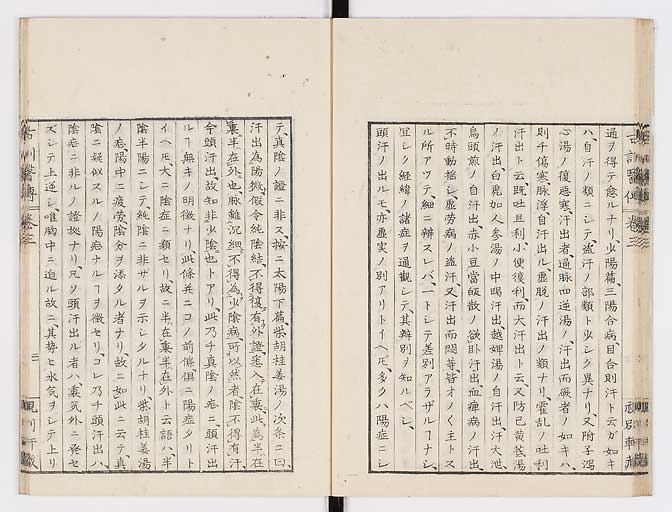 通ヲ得テ愈ルナリ少陽篇三陽合病目合則汗ト云カ如キ
ハ自汗ノ類ニシテ盗汗ノ部類ト少シク異ナリ又附子瀉
心湯ノ復悪寒汗出者通脉四逆湯ノ汗出而厥者ノ如キハ
則千傷寒脉浮自汗出ル虚脱ノ汗出ノ類ナリ霍乱ノ吐利
汗出ト云既吐且利小便復利而大汗出ト云又防已黄芪湯
ノ汗出白虎加人参湯ノ中暍汗出越婢湯ノ自汗出汗大泄
烏頭煎ノ自汗出赤小豆當皈散ノ欲臥汗出血痺病ノ汗出
不時動揺シ虚労病ノ盗汗又汗出而悶等皆オノく主トス
ル所アツテ細ニ辨スレバ一トシテ差別アラザルヿナシ
宜シク経緯ノ諸症ヲ通観シテ其辨別ヲ知ルベシ
頭汗ノ出ルモ亦虚実ノ別アリトイヘ𪜈多クハ陽症ニシ
テ真陰ノ證ニ非ス按ニ太陽下篇柴胡桂姜湯ノ次条ニ曰
汗出為陽微假令純陰結不得復有外證悉入在裏此為半在
裏半在外也脉雖沉細不得為少陰病可以然者陰不得有汗
今頭汗出故知非少陰也トアリ此乃千真陰ノ症ニ頭汗出
ルヿ無キノ明徴ナリ此條并ニコノ前條倶ニ陽症タリト
イヘ𪜈大ニ陰症ニ類セリ故ニ半在裏半在外ト云語ハ半
陰半陽ニシテ純陰ニ非ザルヲ示シタルナリ柴胡桂姜湯
ノ症陽中ニ疲労陰分ヲ添タル者ナリ故ニ如此ニ云テ真
陰ニ疑似スルノ陽症ナルヿヲ徴セリコレ乃千頭汗出ハ
陰症ニ非ルノ證拠ナリ凡夕頭汗出ル者ハ裏気外ニ発セ
ズシテ上逆シ唯胸中ニ迫ル故ニ其勢ヒ水気ヲシテ上リ
卷三
三